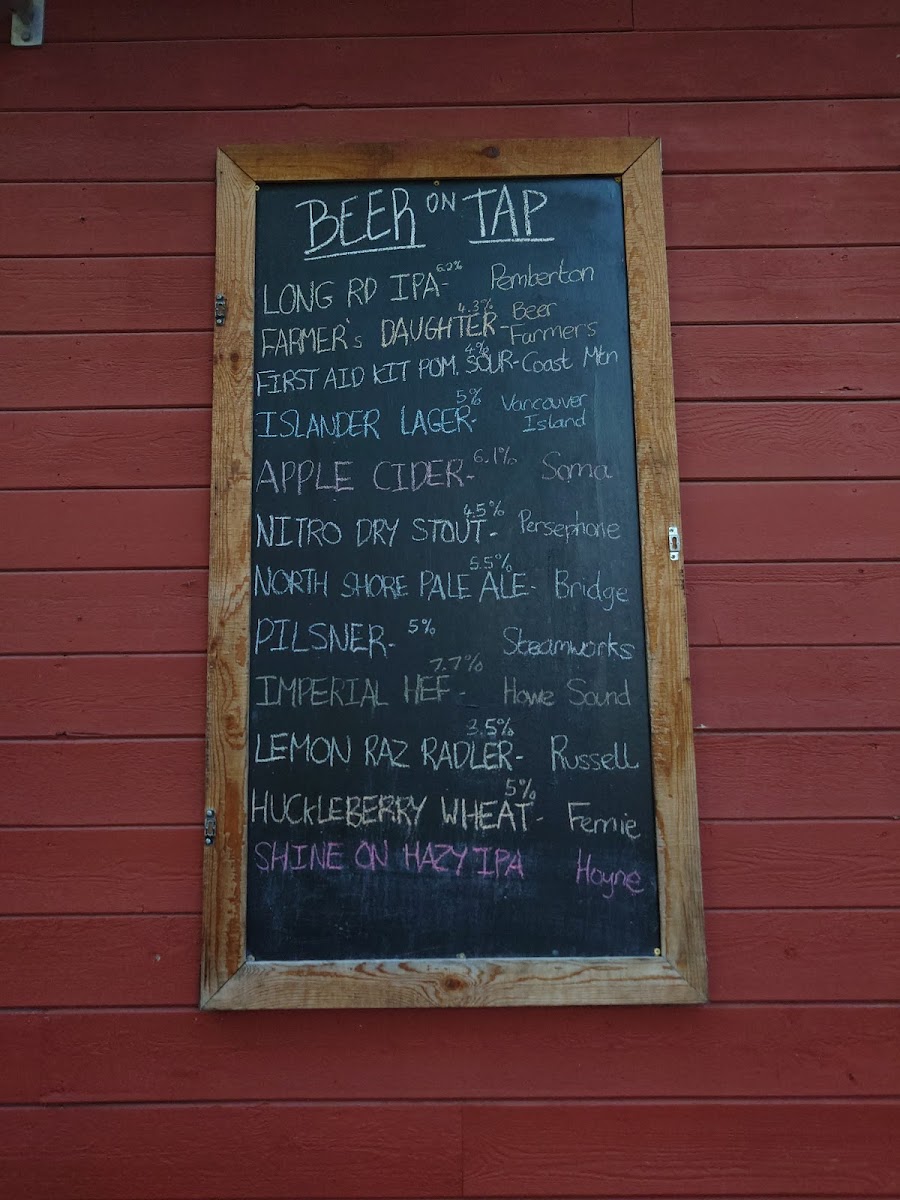 BEER ON TAP
LONG RD IPA- 6.2% Pemberton
FARMER's DAUGHTER- 4.3% Beer Farmers
FIRST AID KIT POM. SOUR- 4% Coast Mtn
ISLANDER LAGER- 5% Vancouver Island
APPLE CIDER- 6.1% Soma
NITRO DRY STOUT- 4.5% Persephone
NORTH SHORE PALE ALE- 5.5% Bridge
PILSNER- 5% Steamworks
IMPERIAL HEF- 7.7% Howe Sound
LEMON RAZ RADLER- 3.5% Russell
HUCKLEBERRY WHEAT- 5% Fernie
SHINE ON HAZY IPA Hoyne